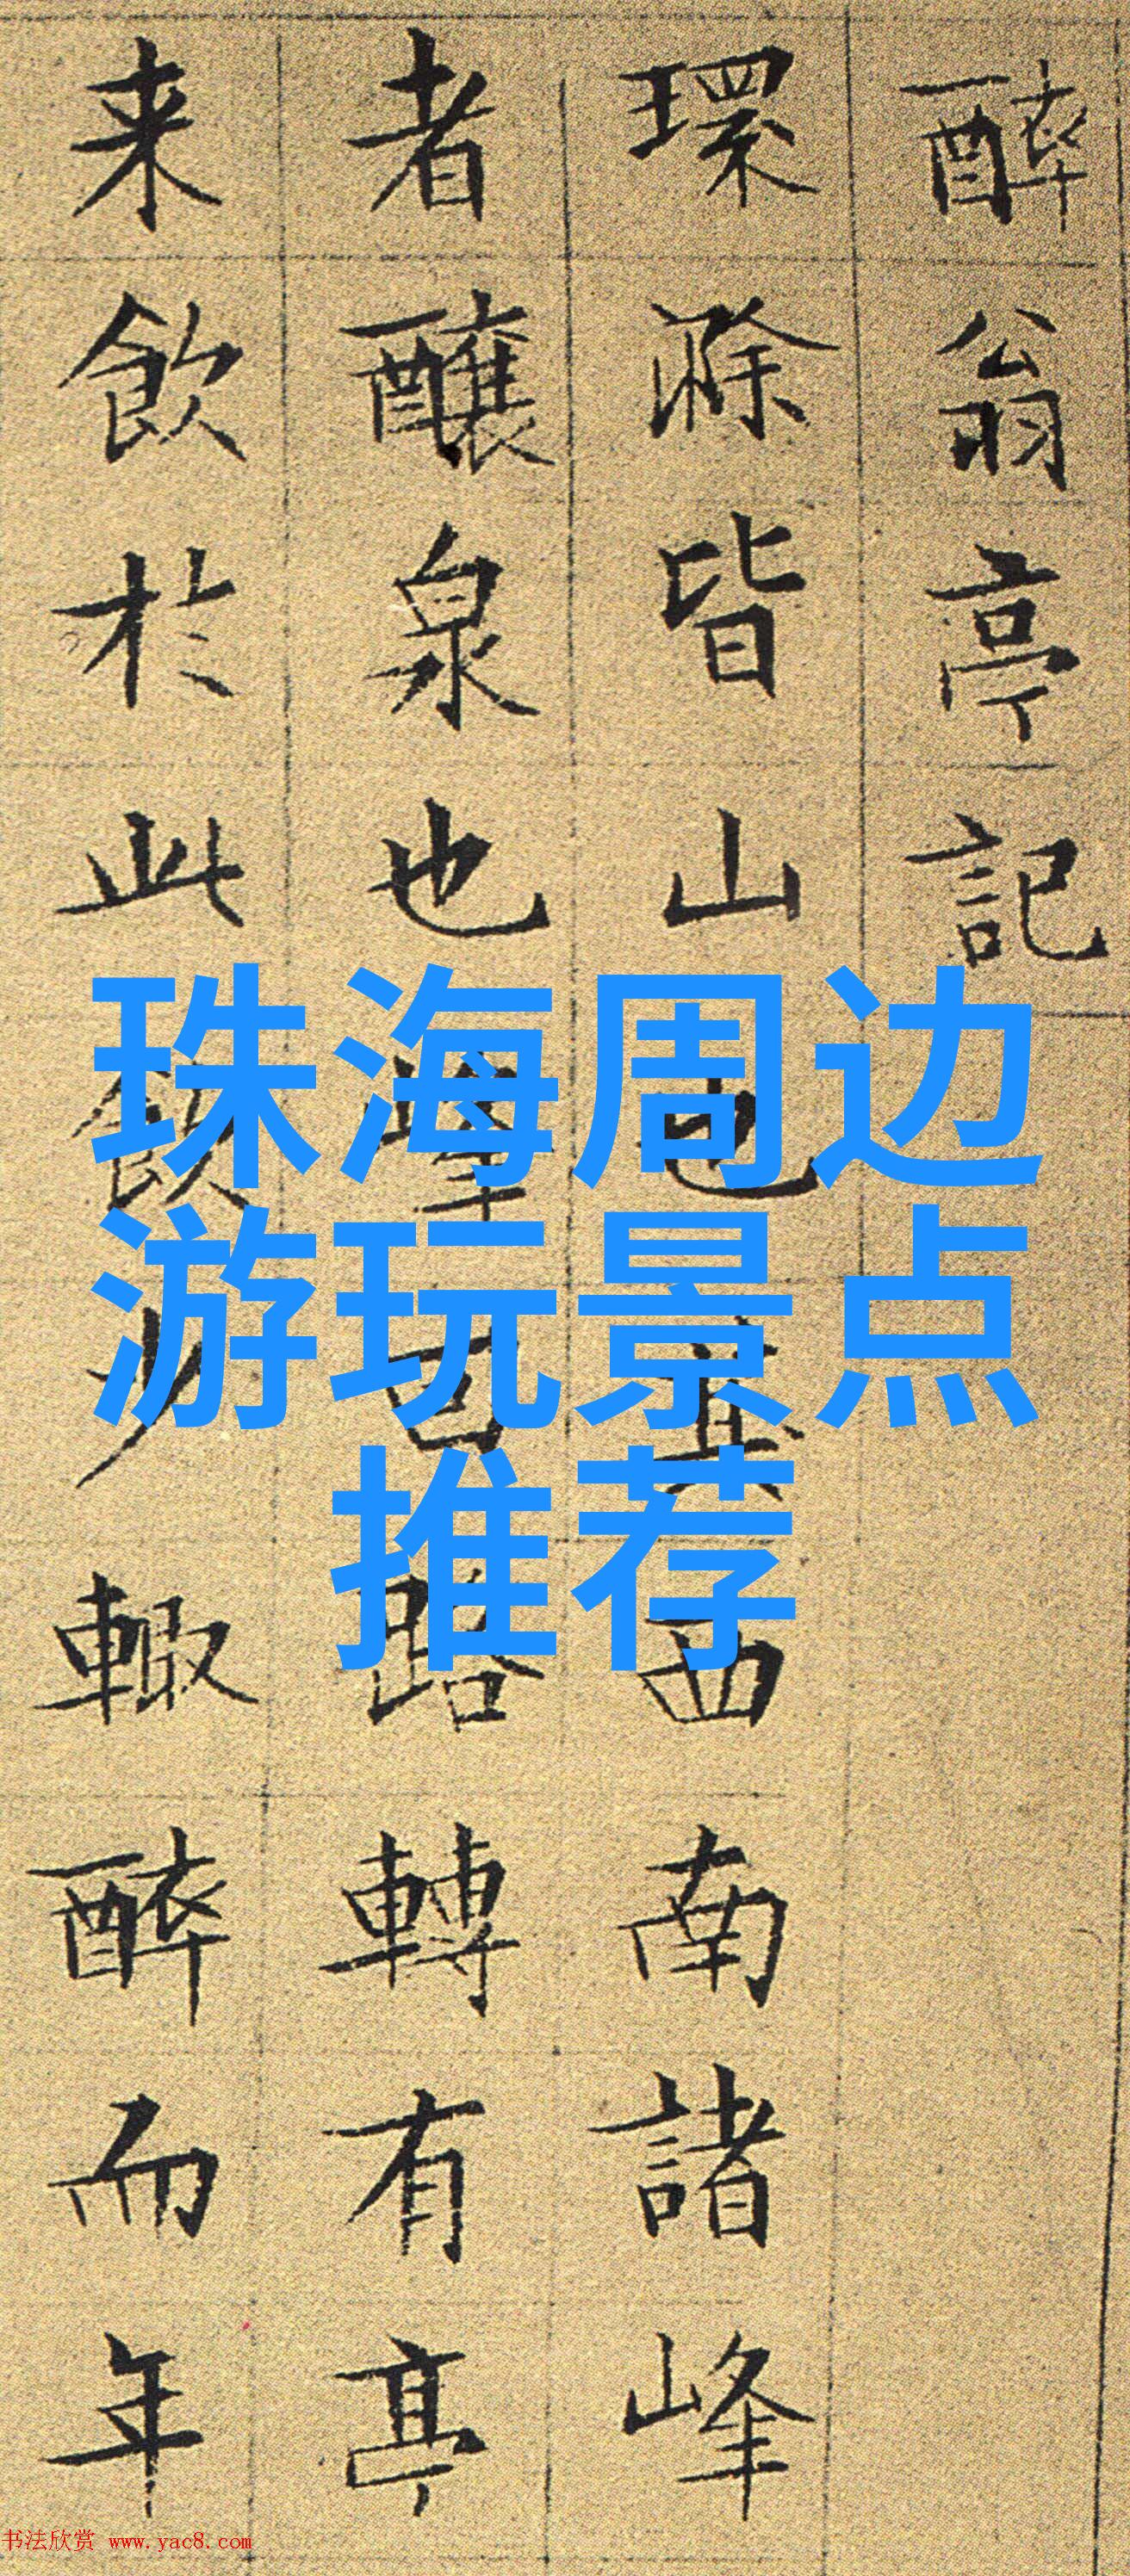 醉翁亭記
環滁皆山也其西南諸峰
者釀泉也峰回路轉有亭
来飲於此飲少輒醉而年
珠海周边
游玩景点
推荐
书法欣赏 www.yac8.com